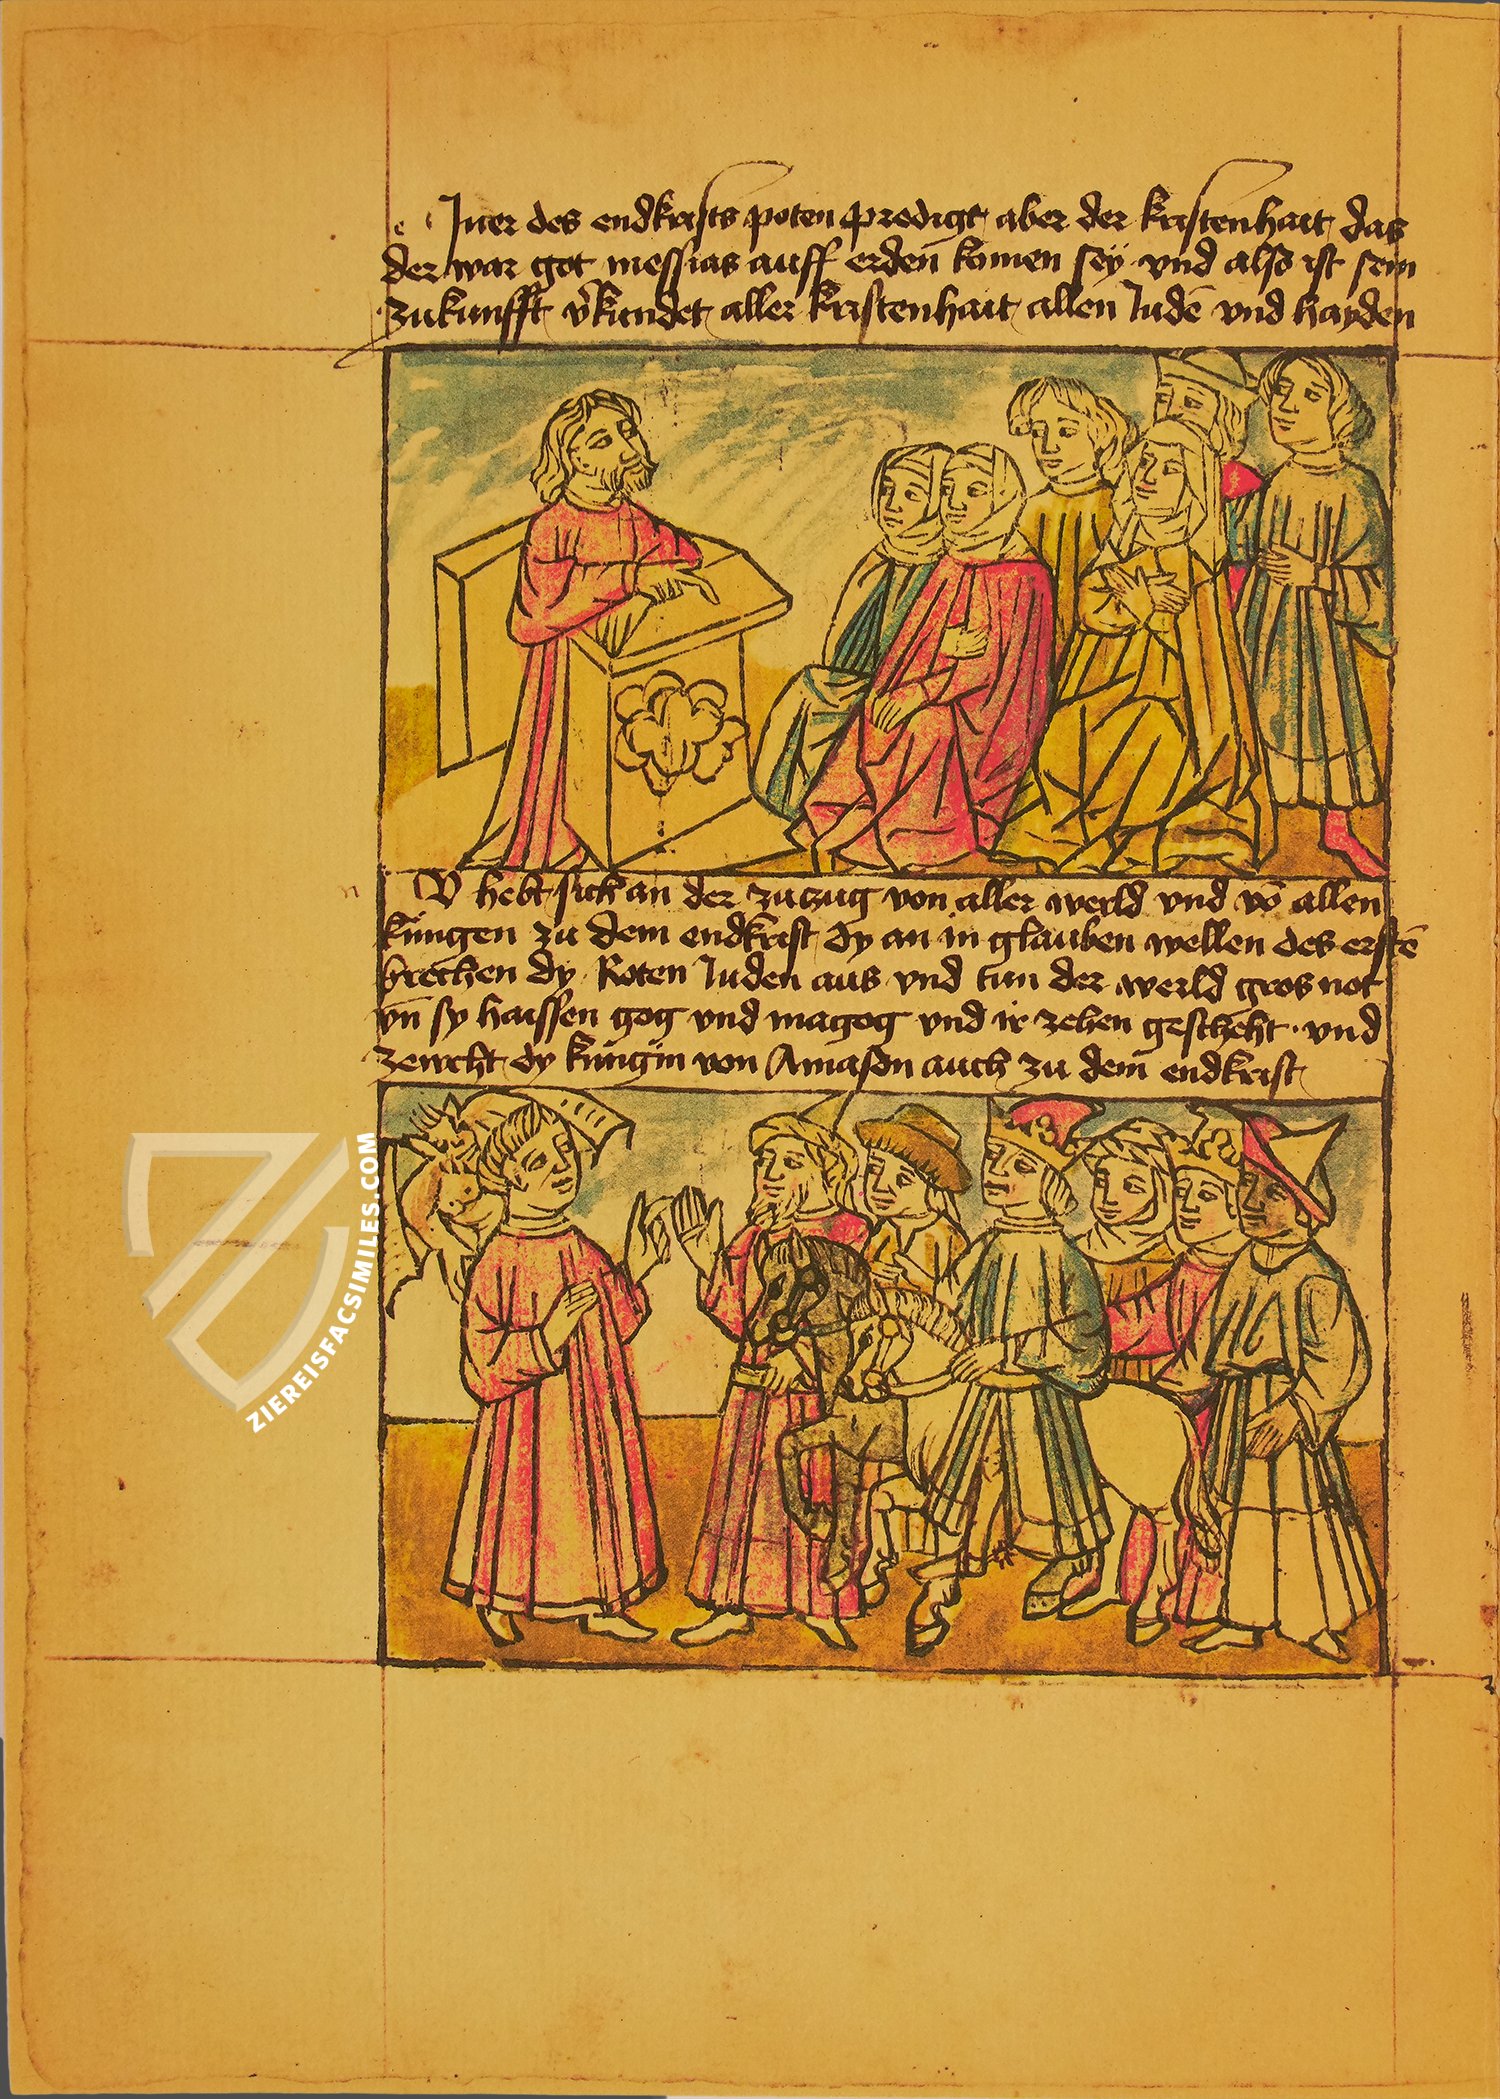 e Iner des endkrists poten predigt aber der kristenhait das
der war got messias auff erden komen sey vnd also ist sein
zukunfft v̄kundet aller kristenhait allen Judē vnd hayden
n V hebt sich an der zuzug von aller werld vnd vō allen
kungen zu dem endkrist dy an in glauben wellen des erstē
brechen dy Roten Juden aus vnd tun der werld gros not
vn̄ sy haissen gog vnd magog vnd ir zehen gescheht · vnd
zeucht dy kungin von Amason auch zu dem endkrist
ZIEREISFACSIMILES.COM